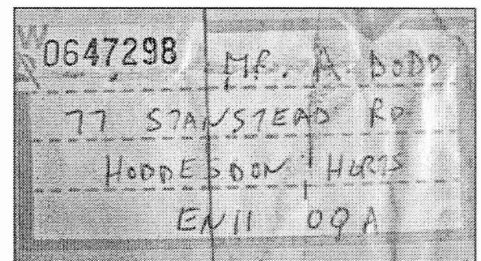 0647298 Mr. A. DODD
77 STANSTEAD RD
HODDESDON HERTS
EN11 0QA